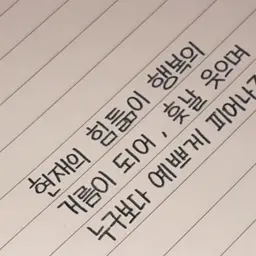 현재의 힘듦이 행복의
거름이 되어, 훗날 웃으며
누구보다 예쁘게 피어나